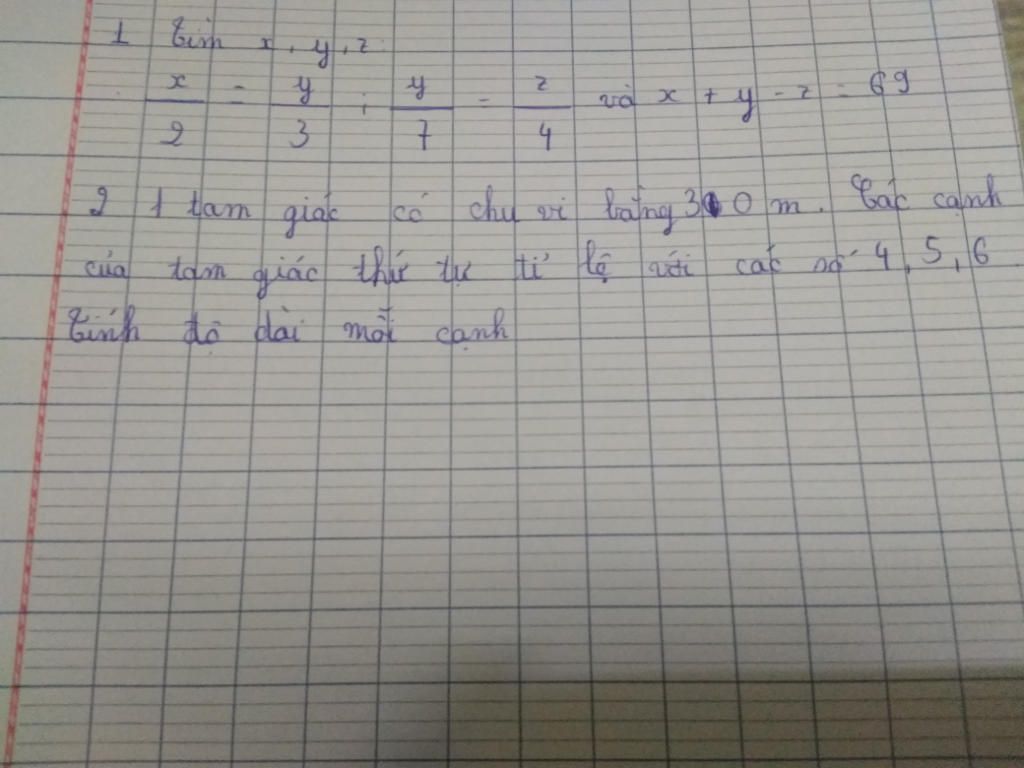 1 Tìm x, y, z
x/2 = y/3 ; y/7 = z/4 và x + y - z = 69
2 1 tam giác có chu vi bằng 30 m. Các cạnh
của tam giác thứ tự tỉ lệ với các số 4, 5, 6
Tính độ dài mỗi cạnh